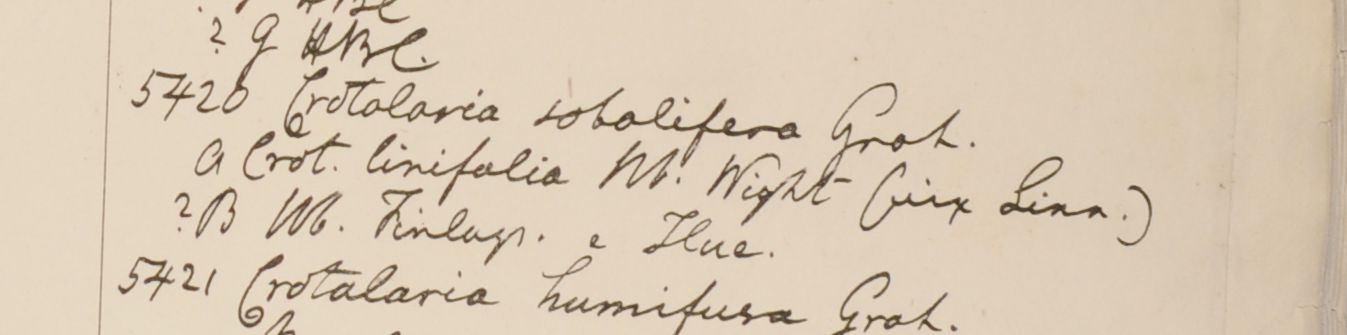 HBC
? G HBC.
5420 Crotalaria sobolifera Grah.
A Crot. linifolia Hb. Wight (vix Linn.)
? B Hb. Finlays. e Hue.
5421 Crotalaria humifusa Grah.